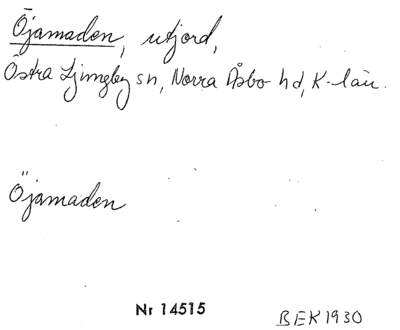 Öjamaden, utjord,
Östra Ljungby sn, Norra Åsbo hd, K-län.
Öjamaden
Nr 14515
BEK 1930